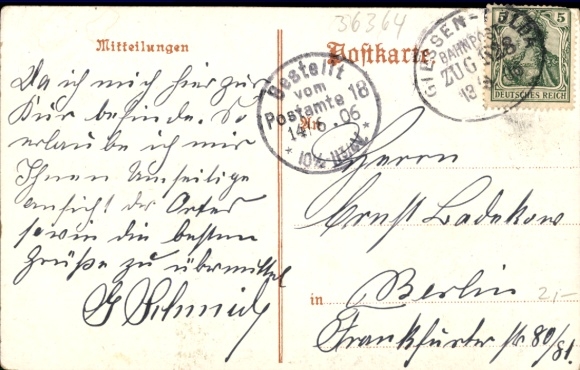 36364
Mitteilungen
Postkarte
Da ich mich hier zur
Kur befinde. So
erlaube ich mir
Ihnen Umseitige
ansicht des Ortes
sowie die besten
Grüße zu übermitteln
G Schmidt
Bestellt
vom
Postamte 18
14/6 06
GIESSEN-
BAHNPOST
ZUG
13
5 5
DEUTSCHES REICH
An
Herrn
Ernst Badekow
in Berlin
2,-
Frankfurter str 80/81.